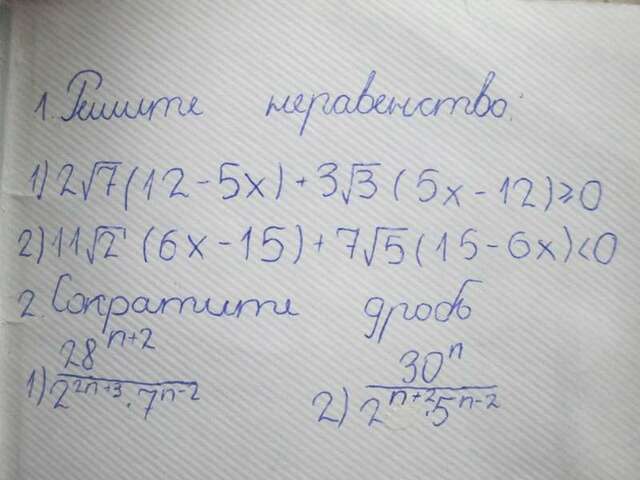 1. Решите неравенство:
1) 2√7(12-5x)+3√3(5x-12)≥0
2) 11√2(6x-15)+7√5(15-6x)<0
2. Сократите дробь
1) 28^(n+2) / 2^(2n+3)·7^(n-2) 2) 30^n / 2^(n+2)·5^(n-2)